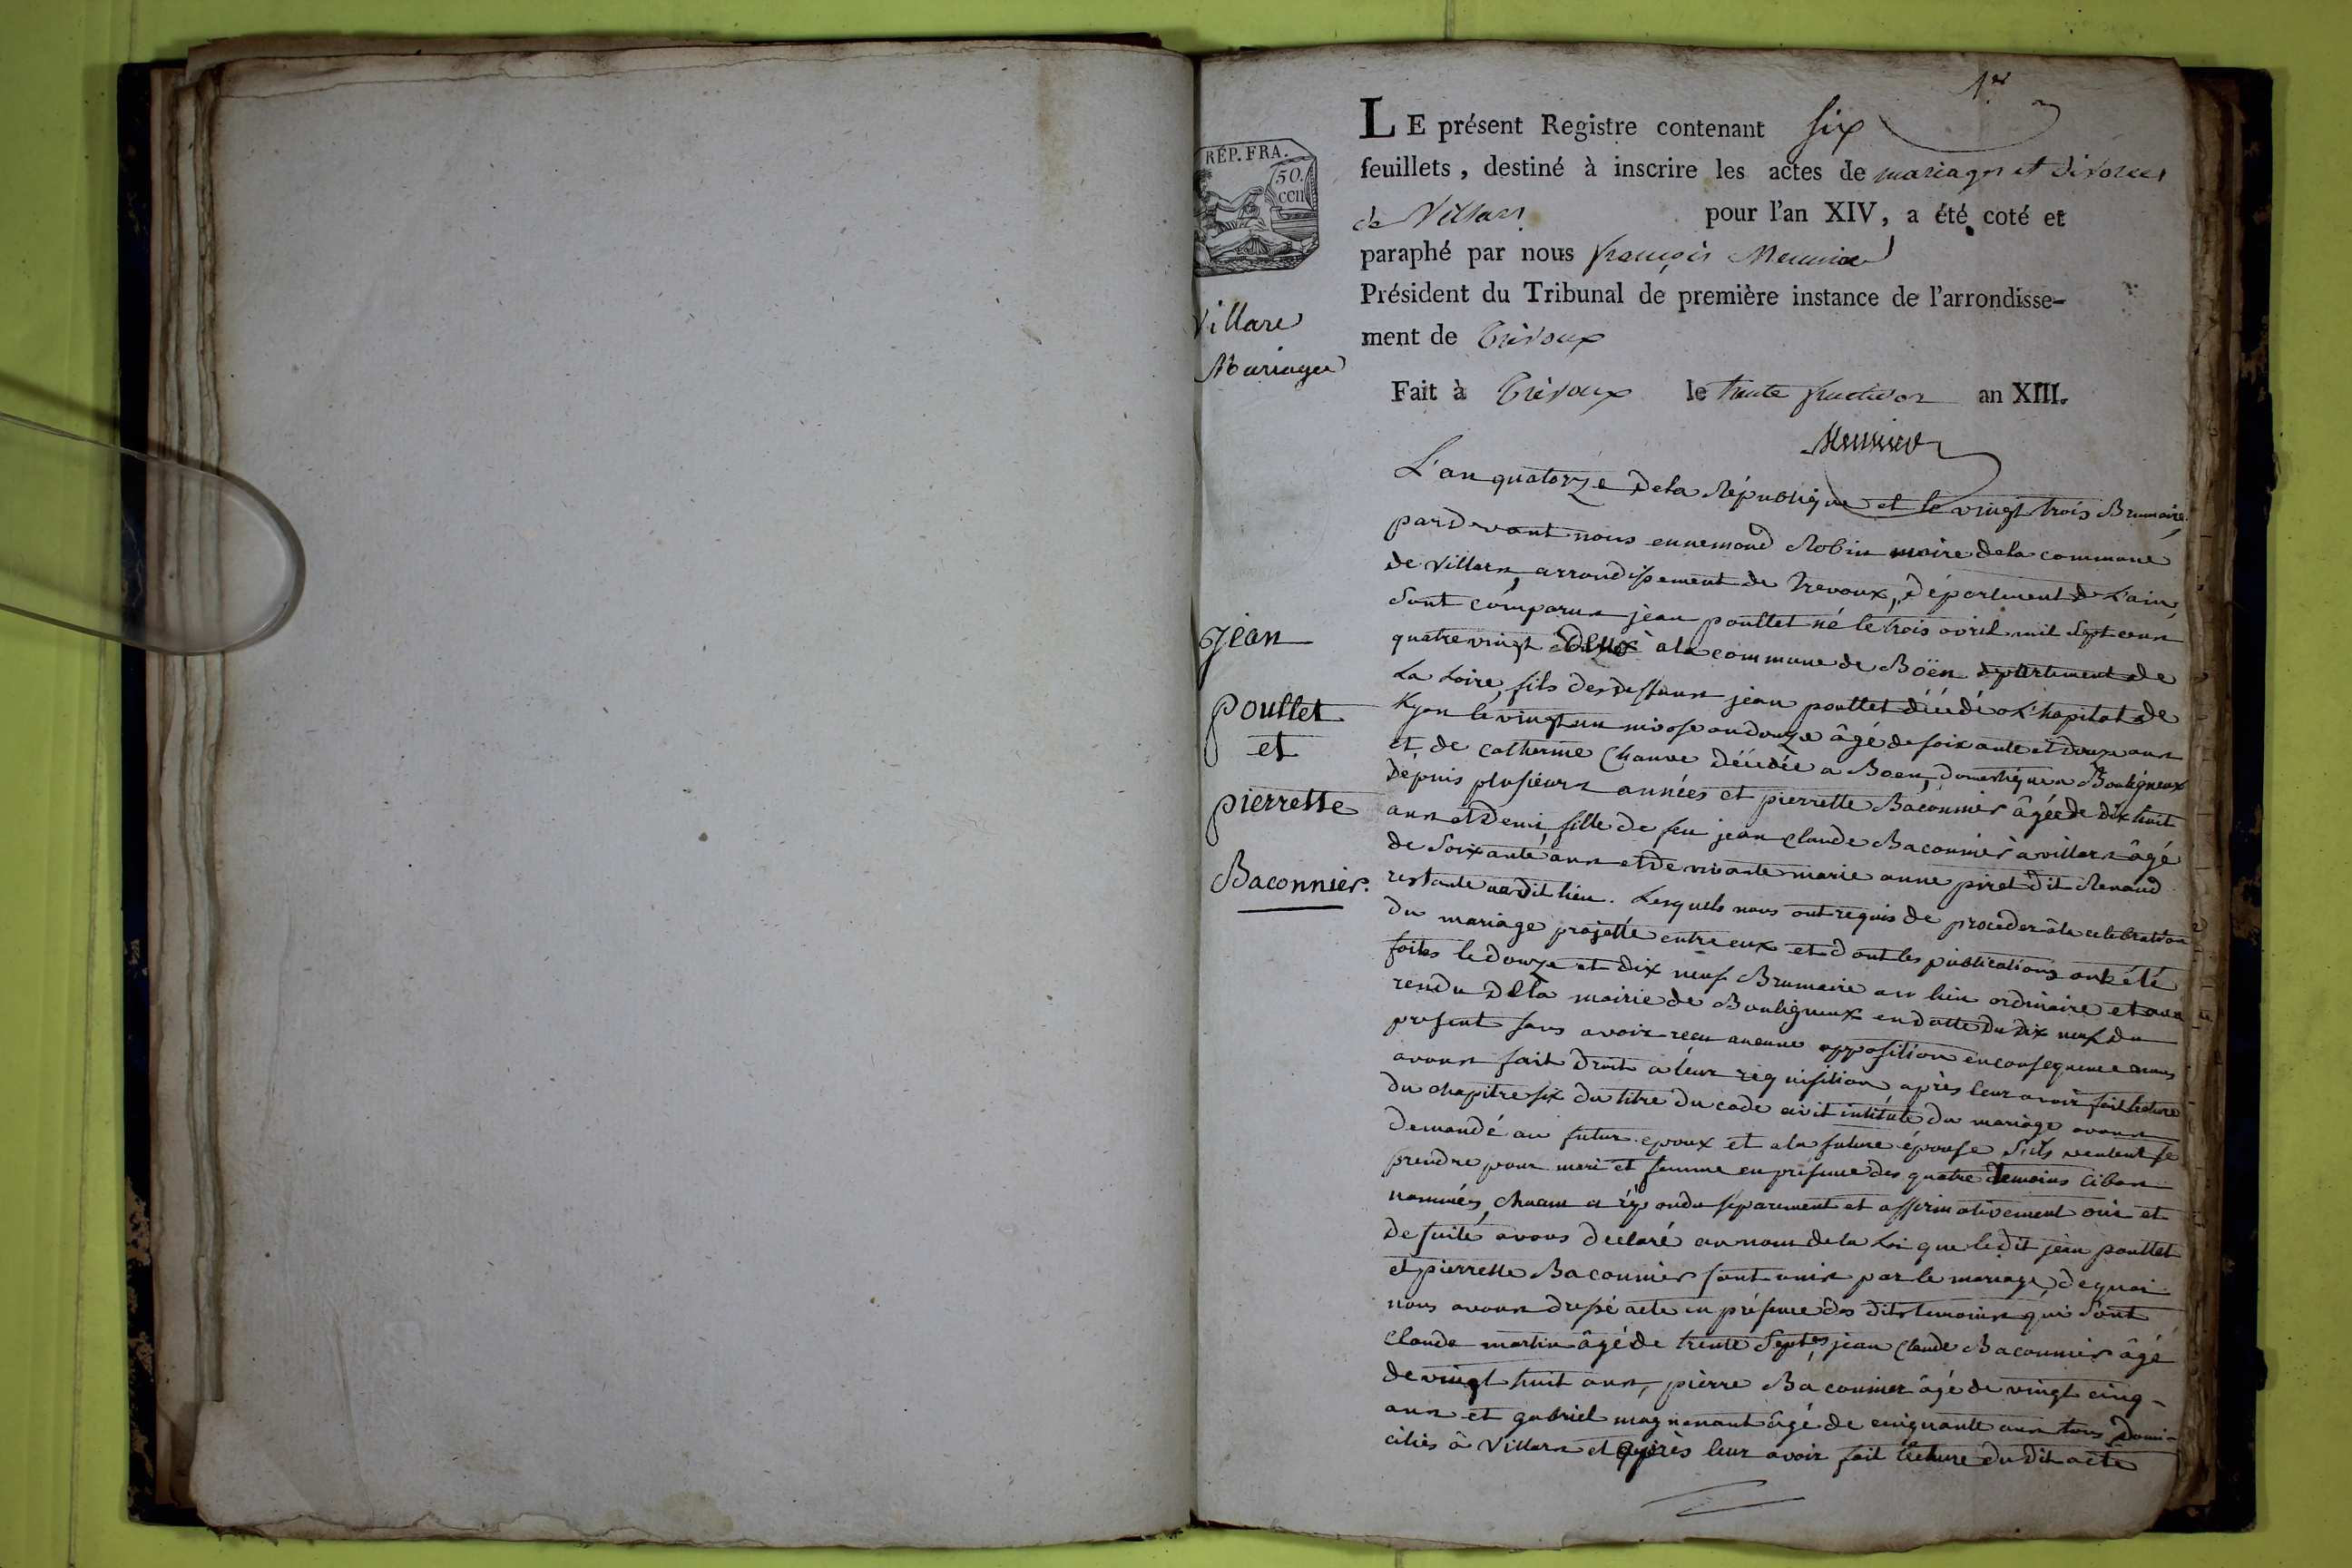 1er
RÉP. FRA.
50.
CEN
Villars
Mariages
LE présent Registre contenant six
feuillets, destiné à inscrire les actes de mariages et divorces
de Villars pour l'an XIV, a été coté et
paraphé par nous françois Meunier
Président du Tribunal de première instance de l'arrondisse-
ment de Trévoux
Fait à Trévoux le trente fructidor an XIII.
Meunier
Jean
poullet
et
pierrette
Baconnier.
L'an quatorze de la République et le vingt trois Brumaire
pardevant nous ennemond Robin maire de la commune
de Villars, arrondissement de trevoux, département de L'ain,
Sont comparus jean poullet né le trois avril mil sept cens
quatre vingt deux a la commune de Böen département de
La Loire, fils des deffuns jean poullet décédé a L'hopital de
Lyon le vingt un nivose an douze âgé de soixante et douze ans
et de catherine Chauve décédée a Boen, domestique a Bouligneux
dépuis plusieurs années et pierrette Baconnier âgée de dix huit
ans et demi, fille de feu jean claude Baconnier a villars âgé
de soixante ans et de vivante marie anne piret dit Renaud
restante audit lieu. Lesquels nous ont requis de proceder à la celebration
du mariage projetté entre eux et dont les publications ont été
faites le douze et dix neuf Brumaire au lieu ordinaire et
rendu de la mairie de Bouligneux en datte du dix neuf du
present sans avoir reçu aucune opposition en consequence nous
avons fait droit a leur réquisition, après leur avoir fait lecture
du chapitre six du titre du code civil intitulé du mariage avons
demandé au futur epoux et a la future épouse s'ils veulent se
prendre pour mari et femme en présence des quatre temoins cibas
nommés, chacun a répondu séparement et affirmativement oui et
de suite avons declaré au nom de la Loi que le dit jean poullet
et pierrette Baconnier sont unis par le mariage, de quoi
nous avons dressé acte en présence des dits temoins qui sont
claude martin âgé de trente sept, jean claude Baconnier âgé
de vingt huit ans, pierre Baconnier âgé de vingt cinq
ans et gabriel magnenant âgé de cinquante ans tous domi-
ciliés à Villars et après leur avoir fait lecture du dit acte